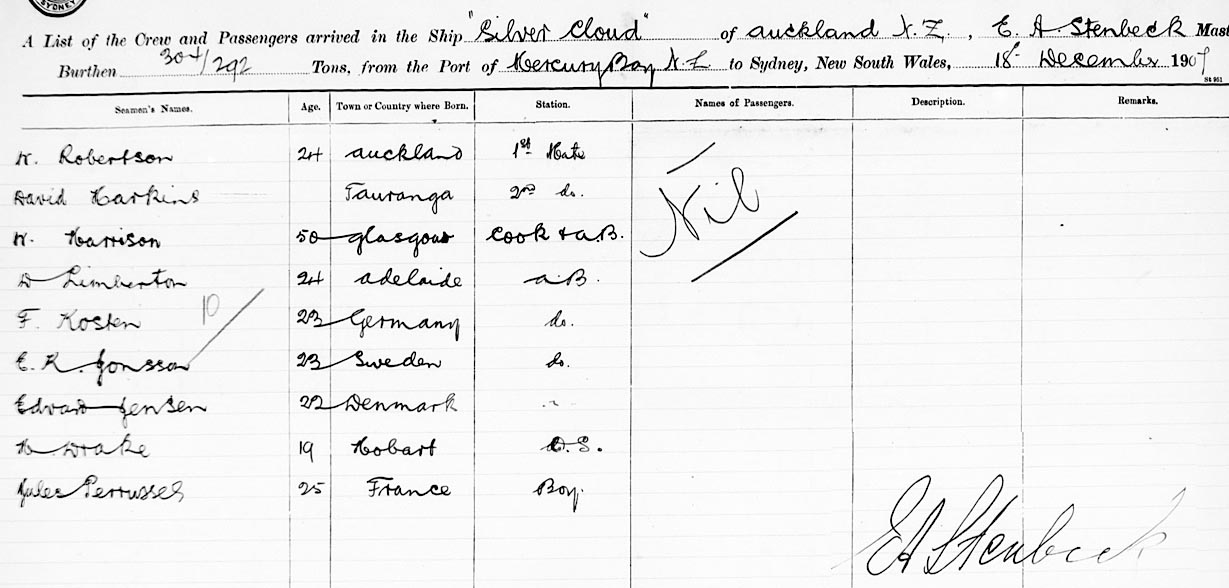 SYDNEY
A List of the Crew and Passengers arrived in the Ship "Silver Cloud" of Auckland N.Z., E. A. Stenbeck Mast
Burthen 304/292 Tons, from the Port of Mercury Bay N.Z. to Sydney, New South Wales, 18th December 1907
St 951
Seamen's Names. Age. Town or Country where Born. Station. Names of Passengers. Description. Remarks.
W. Robertson 24 Auckland 1st Mate
David Harkins Tauranga 2nd do.
W. Harrison 50 Glasgow Cook & A.B.
D Limberton 24 Adelaide A.B.
F. Kosten 23 Germany do.
E. R. Jonsson 23 Sweden do.
Edvard Jensen 22 Denmark
H Drake 19 Hobart O.S.
Jules Perrussel 25 France Boy.
Nil
10
EA Stenbeck